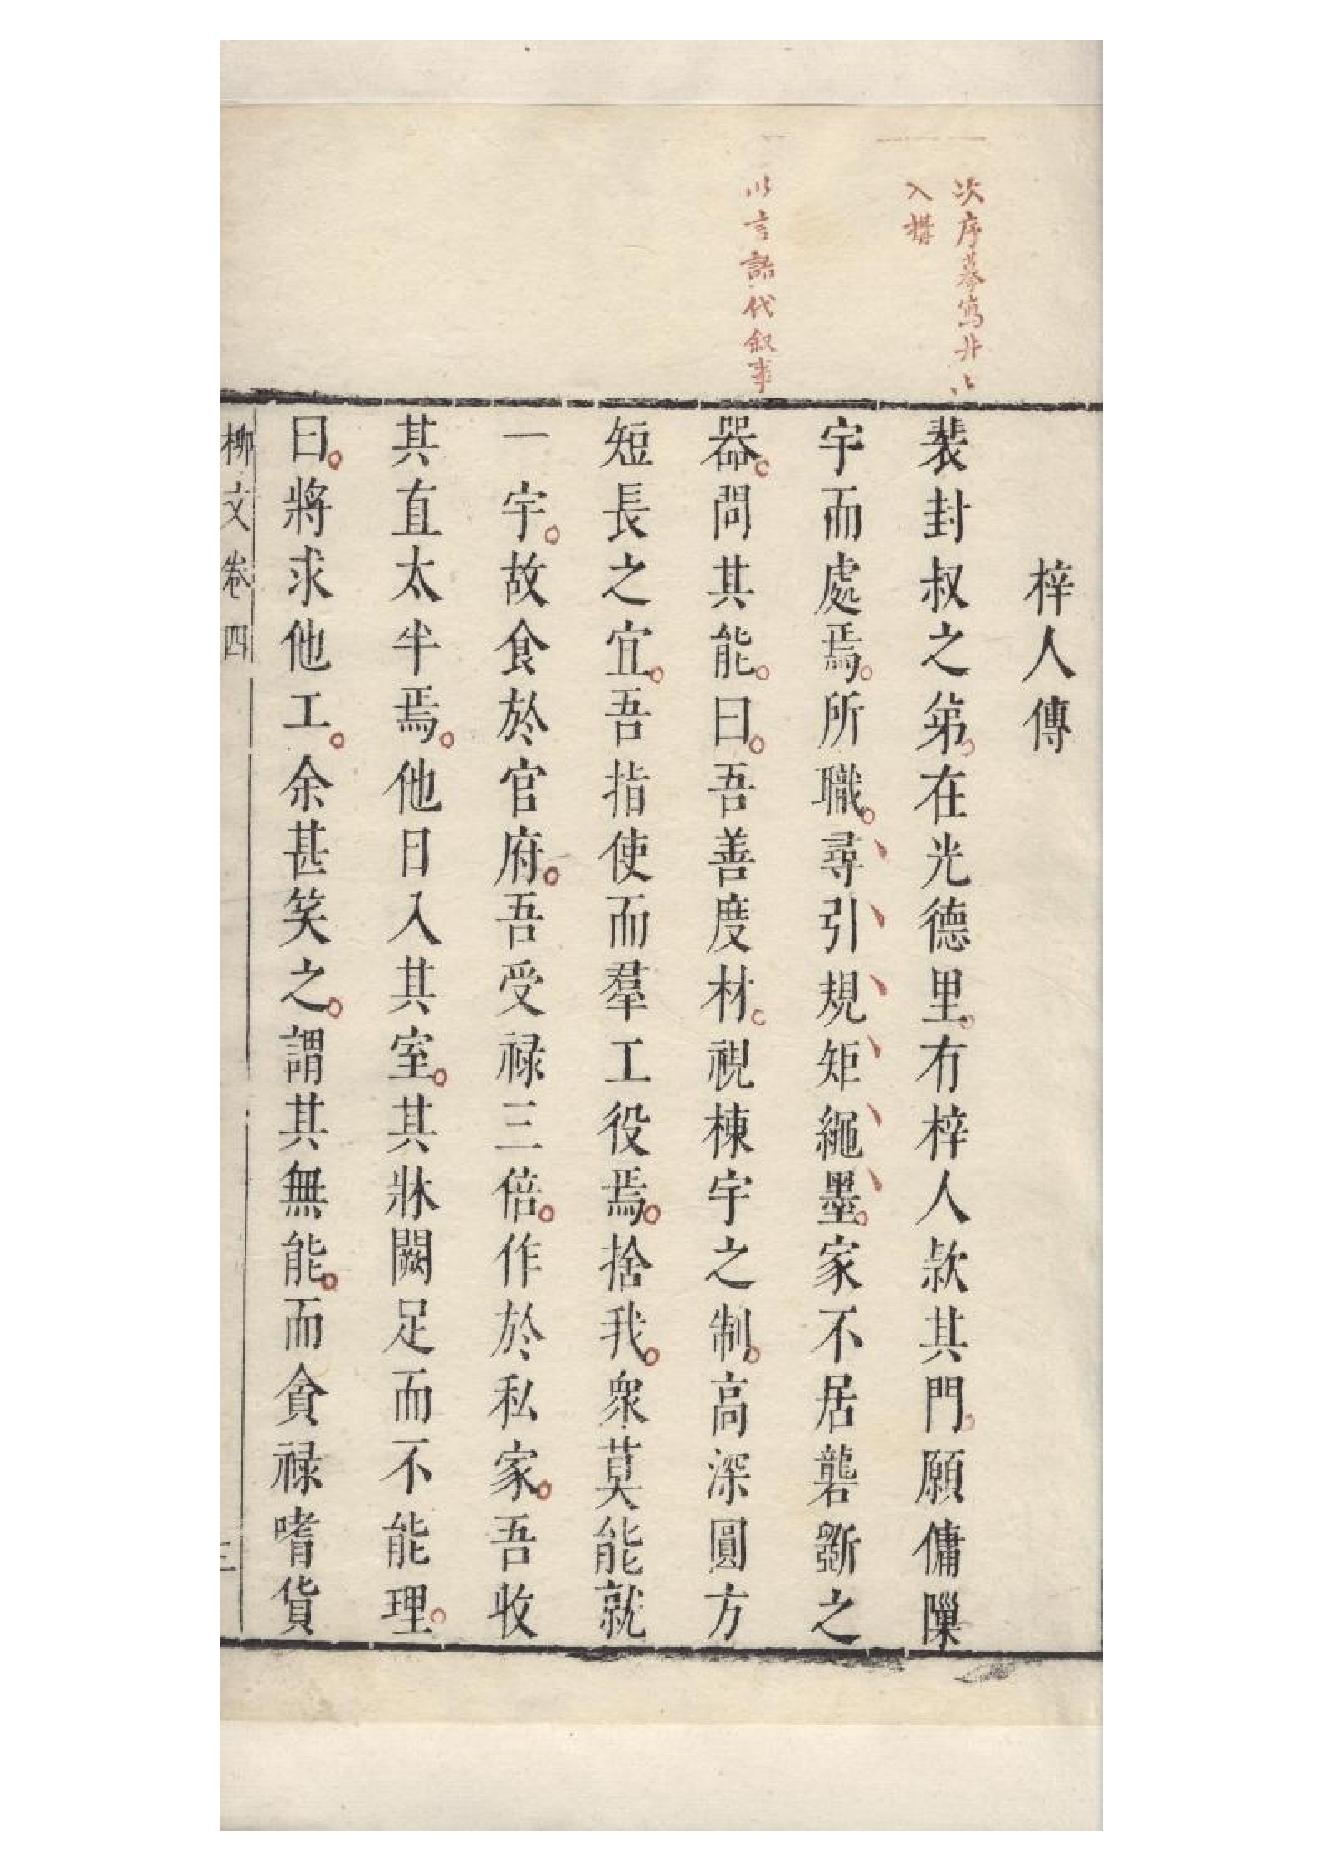 次序摹寫井〻
入構
以言語代叙事
梓人傳
裴封叔之第。在光德里。有梓人款其門。願傭隟
宇而處焉。所職。尋引規矩繩墨。家不居礱斵之
器。問其能。曰。吾善度材。視棟宇之制。高深圓方
短長之宜。吾指使而羣工役焉。捨我。衆莫能就
一宇。故食於官府。吾受禄三倍。作於私家。吾收
其直太半焉。他日入其室。其牀闕足而不能理。
曰。將求他工。余甚笑之。謂其無能。而貪禄嗜貨
柳文卷四
三